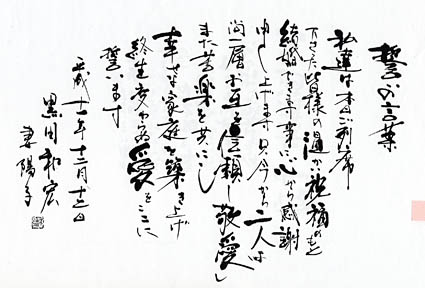 誓いの言葉
私達は本日ご列席
下さった皆様の温かい祝福のもと
結婚できます事に心から感謝
申し上げます 只今から二人は
尚一層お互を信頼し敬愛し
また苦楽を共にし
幸せな家庭を築き上げ
終生変わらぬ愛をここに
誓います
平成十一年十二月十二日
黒田和宏
妻陽子